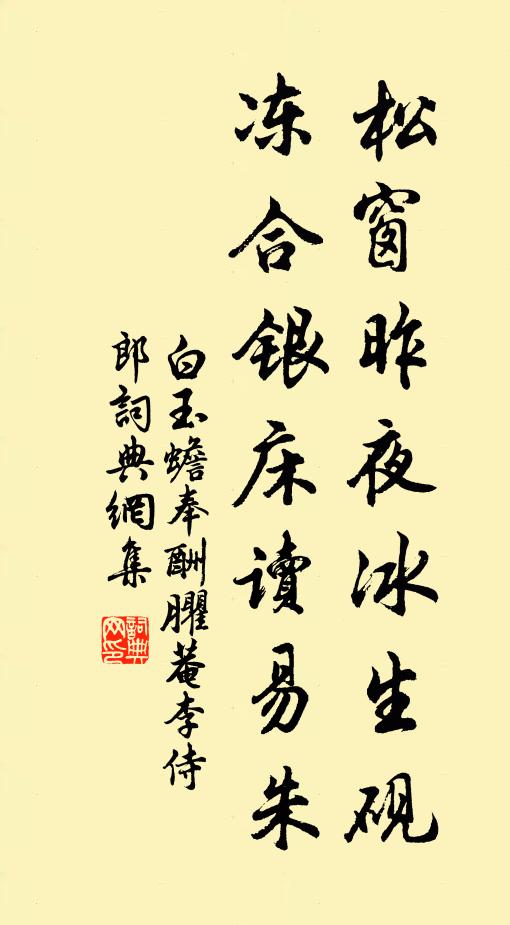 松窗昨夜冰生砚
冻合银床读易朱
白玉蟾奉酬臞菴李侍
郎詞典網集
詞典
网印